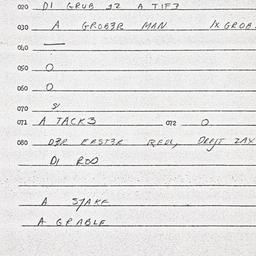 020 DI GRUB IZ A TIF?
030 A GROB3R MAN /X GROB
040 —
050 O
060 O
070
071 A TACK3 072 O
080 D3R ERST3R REDL, DREJT ZAX
DI ROD
A STAKE
A GRABLE